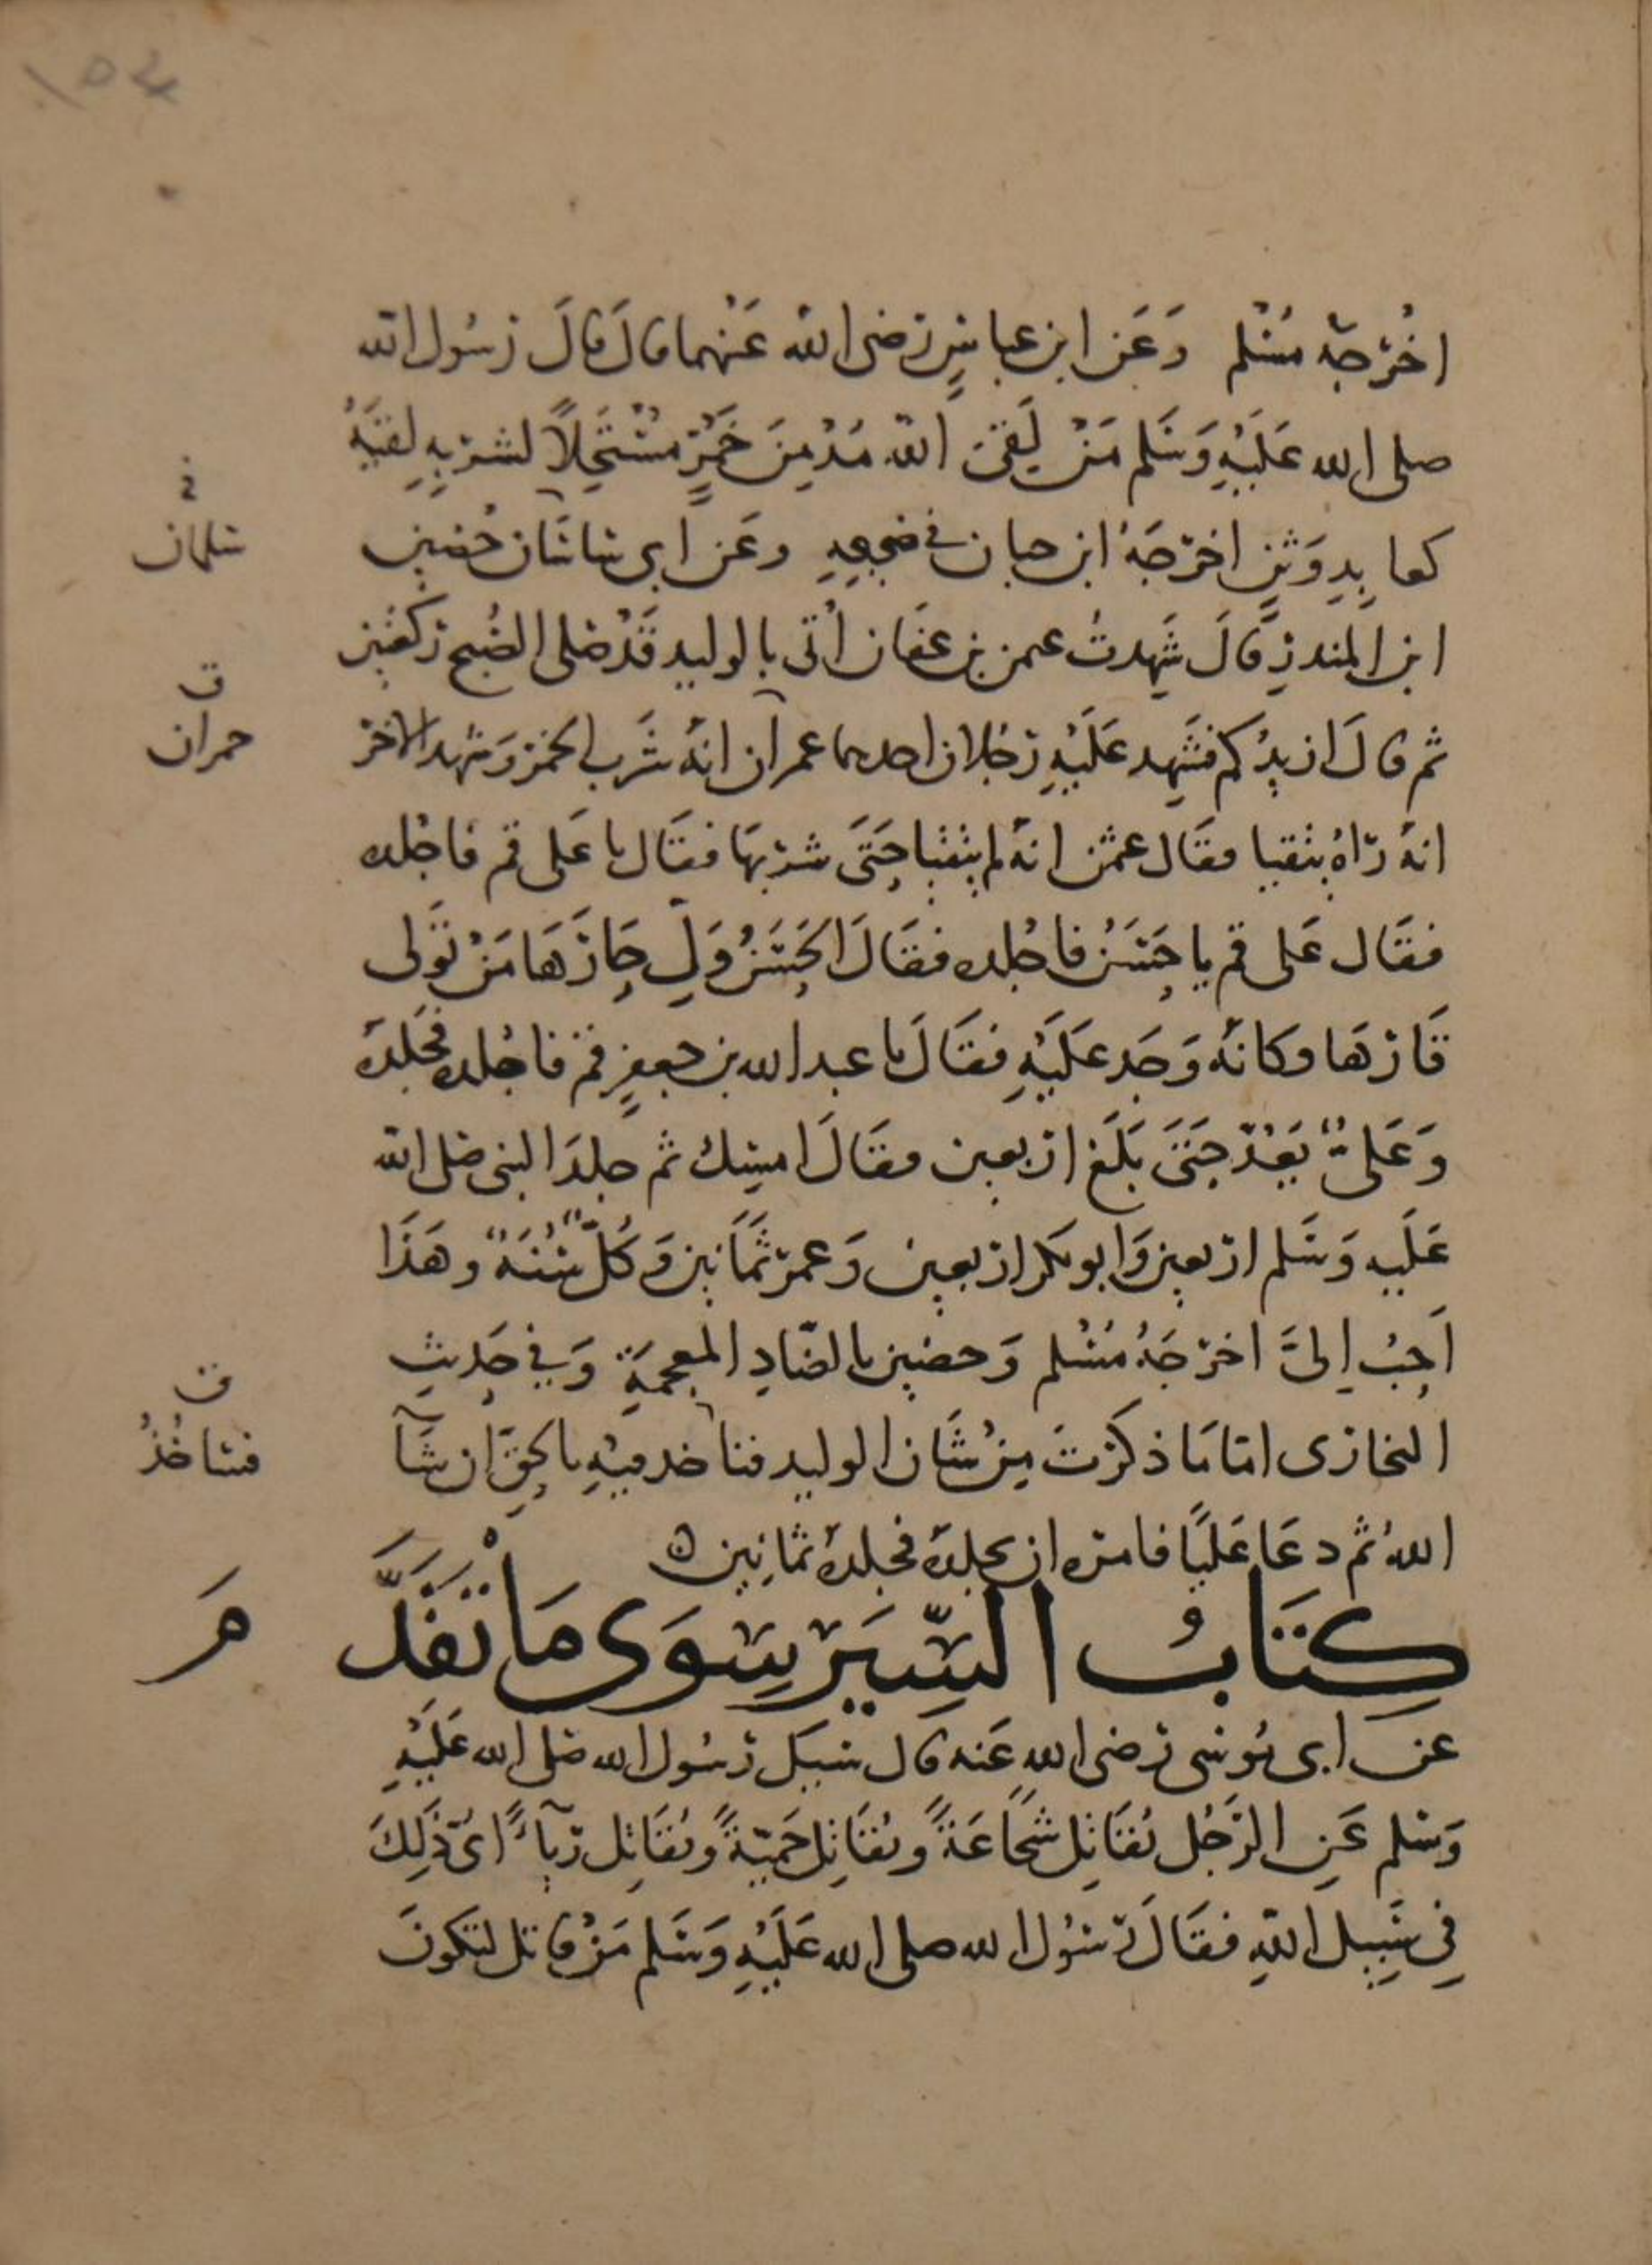 ١٥٤
اخرجه مسلم وَعَن ابن عباسٍ رضى الله عَنْهما قال قالَ رسُول الله
صلى الله عَلَيْهِ وَسَلم مَنْ لَقىَ الله مُدْمِنَ خَمْرٍ مُسْتَحِلاً لشربِهِ لقيَهُ
كعابدِ وَثنٍ اخرجَهُ ابن حبان في صحيحِهِ وعَن ابى ساسَان حُضين
ف
سلمان
ابن المنذرِ قالَ شَهِدتُ عثمن بن عفان اُتى بالوليد قَدْ صَلى الصُبح ركعتين
ثم قالَ ازيدُكم فشَهِد عَلَيْهِ رَجُلان احدهما عمران انهُ شَرب الخمر وَشهد الاخر
ق
حمران
انهُ رَاهُ يتقيا فقَال عثمن انهُ لم يتقيا حَتىَ شربَها فقَال يا عَلى قم فاجْلده
فقَال عَلى قم يا حَسَنُ فاجْلده فقَالَ الحَسَنُ وَلِ حَارَّهَا مَنْ تَوَلى
قَارَّهَا وكانهُ وَجَد عَلَيْهِ فقَالَ يا عبد الله بن جعفرٍ قم فاجْلده فجَلدَهُ
وَعَلىٌّ يَعُدّ حَتىَ بَلَغَ اربعين فقَالَ امسِك ثم جلدَ النبى صَلى الله
عَلَيهِ وَسَلم اربعين وَابو بكر اربعين وَعمر ثمَانين وَكُلٌّ سُنَةٌ وهَذَا
اَحبُ اِلىَّ اخرجَهُ مُسْلم وَحضين بالضَادِ المعجمَةِ وَفي حَديثِ
البخارى امّا مَا ذكرْتَ مِنْ شَان الوليد فناخد فيْهِ بالحقِ ان شَآ
ق
فسَنَاخُذُ
اللهُ ثم دعَا عَليًا فامره ان يجلدَهُ فجلدَهُ ثمانِين
كِتَابُ السِّيَر سِوَى مَا تقَدَّ
مَ
عن ابى مُوسَى رضى الله عَنه قال سُيل رسُول الله صَلى الله عَلَيْهِ
وَسَلم عَنِ الرَّجُل يُقَاتِل شَجَاعَةً ويُقَاتِل حَمِيّةً ويُقَاتِل ريآءً اىّ ذَلِكَ
فِى سَبِيل اللهِ فقَالَ رسُول الله صلى الله عَلَيْهِ وَسَلم مَنْ قاتل لتكونَ